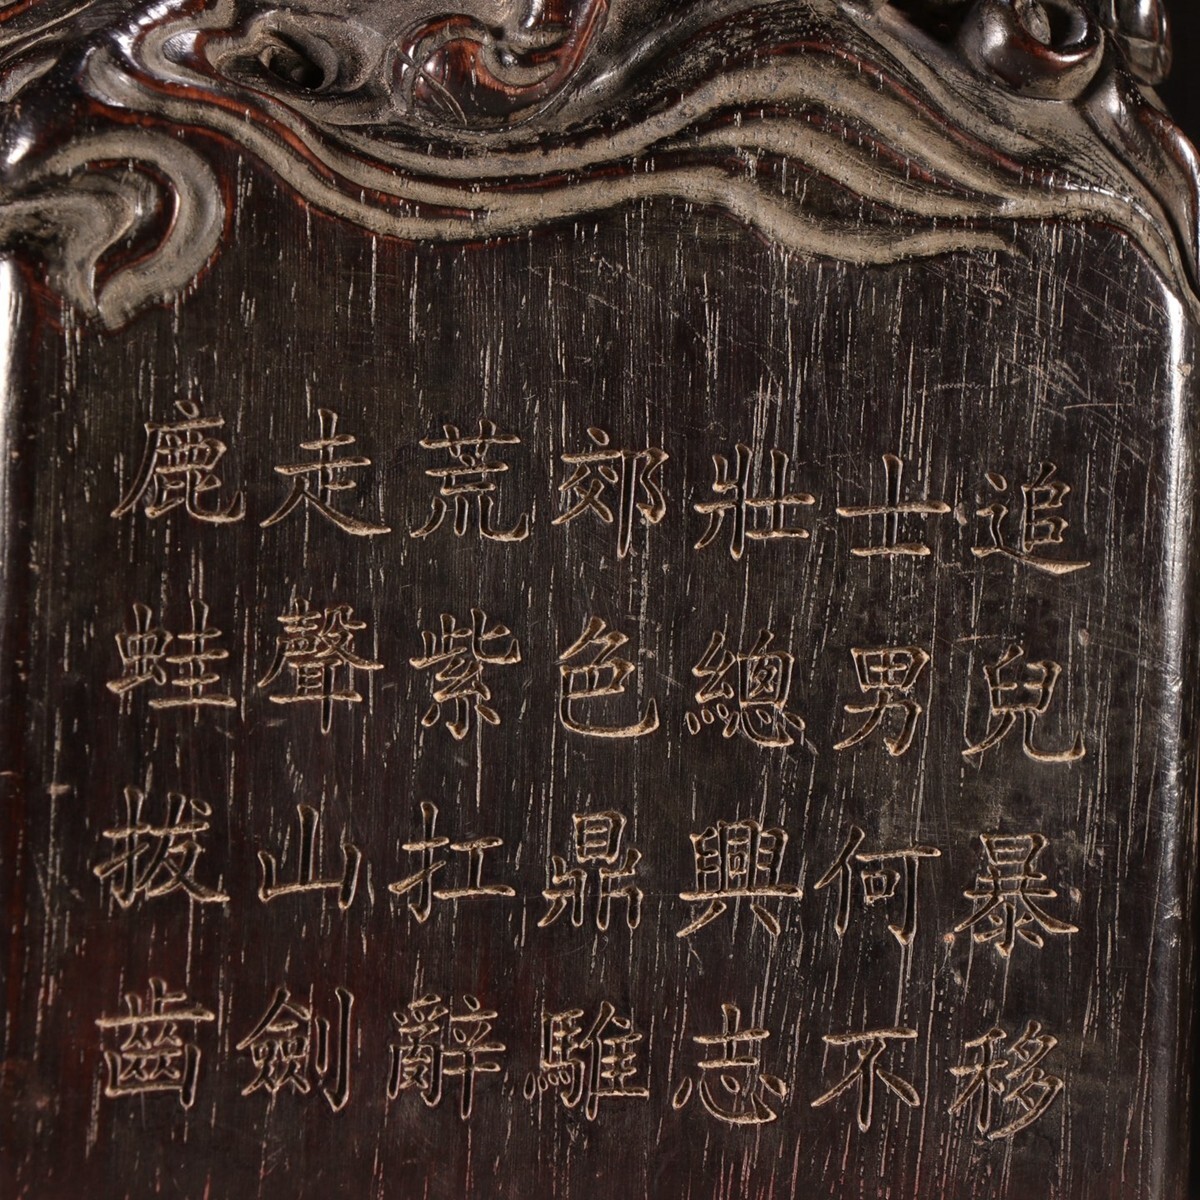 鹿走荒郊壯士追
蛙聲紫色總男兒
拔山扛鼎興何暴
齒劍辭騅志不移